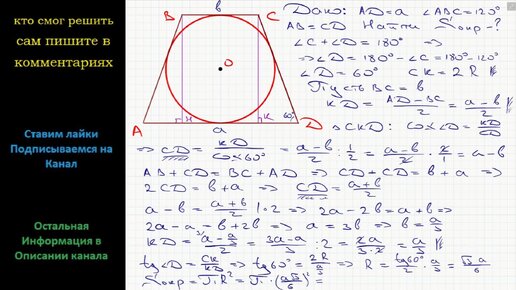 кто смог решить
сам пишите в
комментариях
Ставим лайки
Подписываемся на
Канал
Остальная
Информация в
Описании канала
B
в
C
O
A
H
a
K
60°
D
Дано: AD=a ∠ABC=120°
AB=CD Найти Sокр-?
∠C+∠D=180° ⇒
⇒∠D=180°-∠C=180°-120°
∠D=60° CK=2R
Пусть BC=в
KD=(AD-BC)/2=(a-в)/2
△CKD: cos∠D=KD/CD
⇒ CD=KD/cos60°=(a-в)/2:1/2=(a-в)/2·2/1=a-в
AB+CD=BC+AD ⇒ CD+CD=в+a ⇒
2CD=в+a ⇒ CD=(a+в)/2
a-в=(a+в)/2 |·2 ⇒ 2a-2в=a+в ⇒
2a-a=в+2в ⇒ a=3в ⇒ в=a/3
KD=(a-a/3)/2=(3a-a)/3:2=2a/(3·2)=a/3
tg∠D=CK/KD ⇒ tg60°=2R/(a/3) ⇒ R=tg60°/2·a/3=√3a/6
Sокр=π·R²=π·(a√3/6)²=